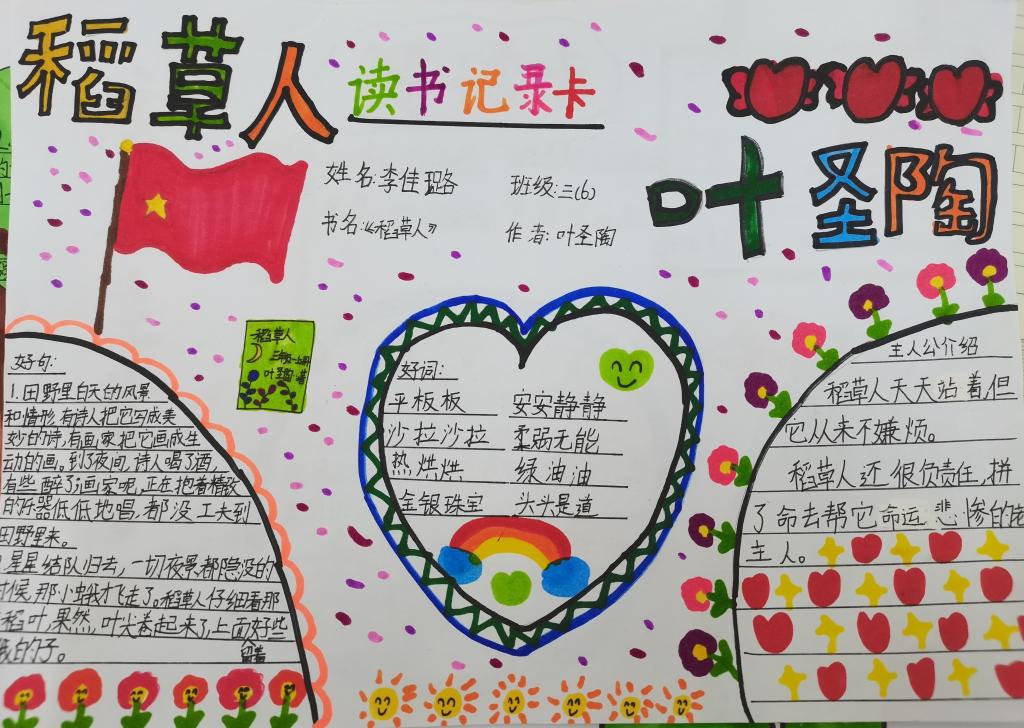 稻草人
读书记录卡
叶圣陶
姓名:李佳璐 班级:三(6)
书名:《稻草人》 作者:叶圣陶
稻草人
三年级上册
叶圣陶·著
好句:
1.田野里白天的风景
和情形,有诗人把它写成美
妙的诗,有画家把它画成生
动的画。到了夜间,诗人喝了酒,
有些醉了;画家呢,正在抱着精致
的乐器低低地唱,都没工夫到
田野里来。
星星结队归去,一切夜景都隐没的
时候,那小蛾才飞走了。稻草人仔细看那
稻叶,果然,叶尖卷起来了,上面
留着
好些
的子。
好词:
平板板 安安静静
沙拉沙拉 柔弱无能
热烘烘 绿油油
金银珠宝 头头是道
主人公介绍
稻草人天天站着,但
它从来不嫌烦。
稻草人还很负责任,拼
了命去帮它命运悲惨的
主人。